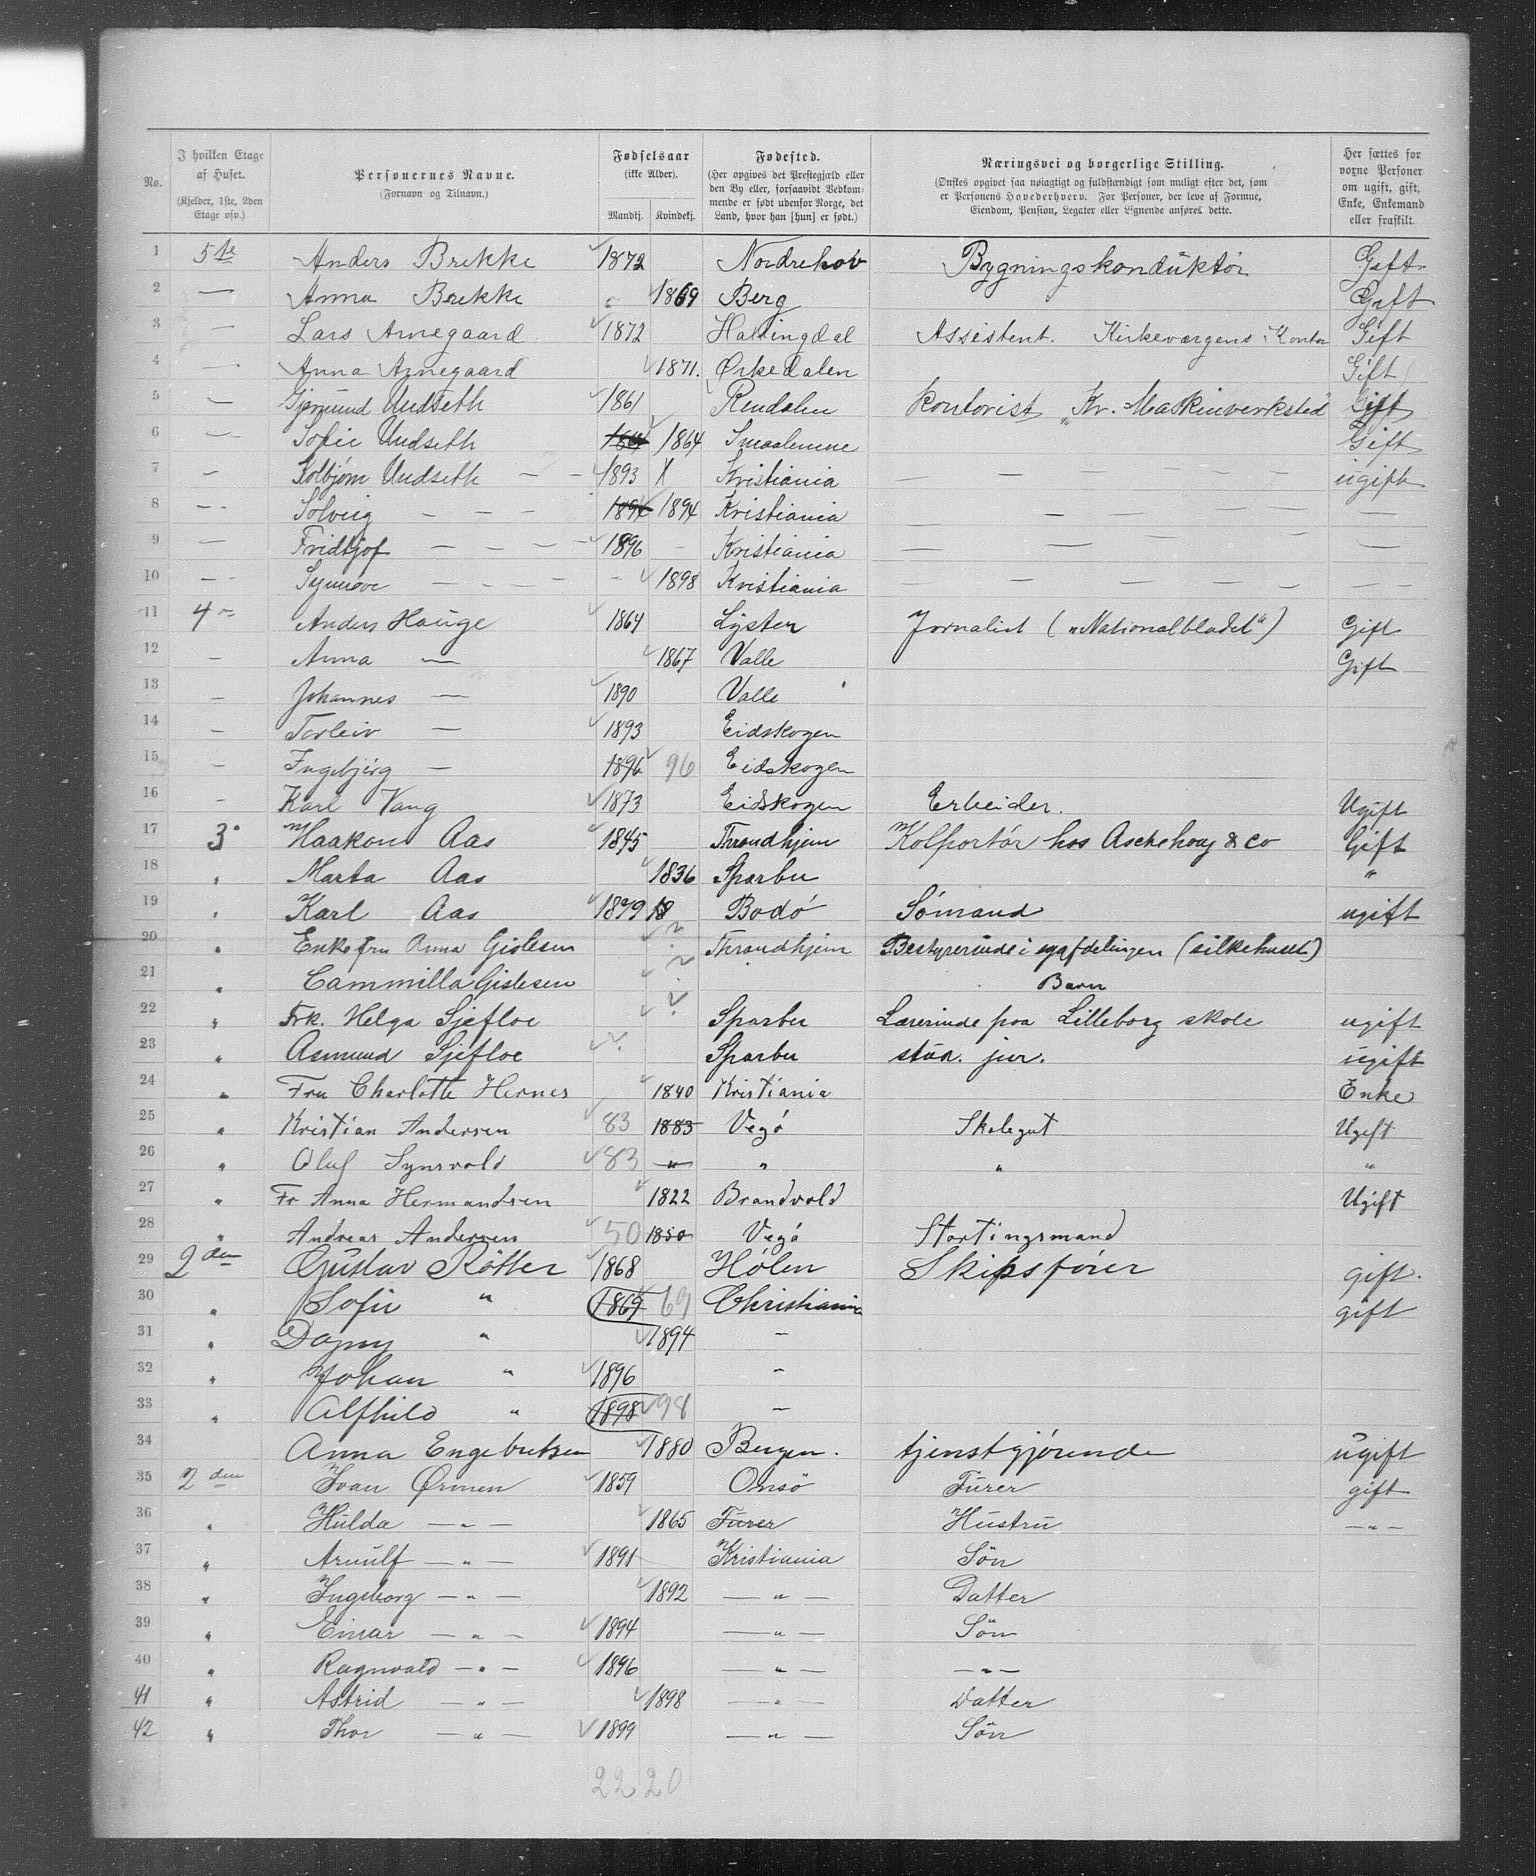 No. | I hvilken Etage af Huset. (Kjelder, 1ste, 2den Etage osv.) | Personernes Navne. (Fornavn og Tilnavn.) | Fødselsaar (ikke Alder). Mandkj. Kvindekj. | Fødested. (Her opgives det Prestegjæld eller den By eller, forsaavidt Vedkommende er født udenfor Norge, det Land, hvor han [hun] er født.) | Næringsvei og borgerlige Stilling. (Ønskes opgivet saa nøiagtigt og fuldstændigt som muligt efter det, som er Personens Hovederhverv. For Personer, der leve af Formue, Eiendom, Pension, Legater eller Lignende anføres dette. | Her sættes for vorne Personer om ugift, gift, Enke, Enkemand eller fraskilt.
1 5te Anders Brekke 1872 Nordrehov Bygningskonduktør Gift
2 — Anna Brekke 1869 Berg Gift
3 — Lars Arnegaard 1872 Hallingdal Assistent. Kirkevergens Kontor Gift
4 — Anna Arnegaard 1871. Ørkedalen Gift
5 — Gjermund Undseth 1861 Rendalen Kontorist „ Kr. Maskinverksted Gift
6 — Sofie Undseth 1864 1864 Smaalenene Gift
7 — Kolbjørn Undseth — — 1893 X Kristiania — ugift
8 — Solveig — — — 1894 1894 Kristiania — —
9 — Fridtjof — — — 1896 — Kristiania — —
10 — Synnøve — — — 1898 Kristiania — —
11 4 Anders Hauge 1864 Lyster Jornalist („Nationalbladet“) Gift
12 — Anna — 1867 Valle Gift
13 — Johannes — 1890 Valle
14 — Torleiv — 1893 Eidskogen
15 — Ingebjørg — 1896 96 Eidskogen
16 — Karl Vang 1873 Eidskogen Erbeider. Ugift
17 3 Haakon Aas 1845 Throndhjem Kolportør hos Aschehoug & Co Gift
18 „ Marta Aas 1836 Sparbu „
19 „ Karl Aas 1879 18 Bodø Sømand ugift
20 „ Enkefru Anna Gislesen ? Throndhjem Bestyrerinde i syafdelingen (silkehuset)
21 „ Cammilla Gislesen ? Barn
22 „ Frk. Helga Sjefloe ? Sparbu Lærerinde paa Lilleborg skole ugift
23 „ Asmund Sjefloe ? Sparbu stud. jur. ugift
24 „ Fru Charlotte Hernes 1840 Kristiania Enke
25 „ Kristian Andersen 83 1883 Vegø Skolegut Ugift
26 „ Oluf Synsvold 83 „ „ „ „
27 „ Fr Anna Hermandsen 1822 Brandvold Ugift
28 „ Andreas Andersen 50 1850 Vegø Stortingsmand
29 2den Gustav Røtter 1868 Hølen Skipsfører gift.
30 „ Sofie „ 1869 69 Christiania gift
31 „ Dagny „ 1894 —
32 „ Johan „ 1896 —
33 „ Alfhild „ 1898 98 —
34 Anna Engebretsen 1880 Bergen. tjenstgjørende ugift
35 2den Ivan Ørmen 1859 Onsø Furer gift
36 „ Hulda — „ — 1865 Furer Hustru — „ —
37 „ Arnulf — „ — 1891 Kristiania Søn
38 „ Ingeborg — „ — 1892 — „ — Datter
39 „ Einar — „ — 1894 — „ — Søn
40 „ Ragnvald — „ — 1896 — „ — — „ —
41 „ Astrid — „ — 1898 — „ — Datter
42 „ Thor — „ — 1899 — „ — Søn
22 20